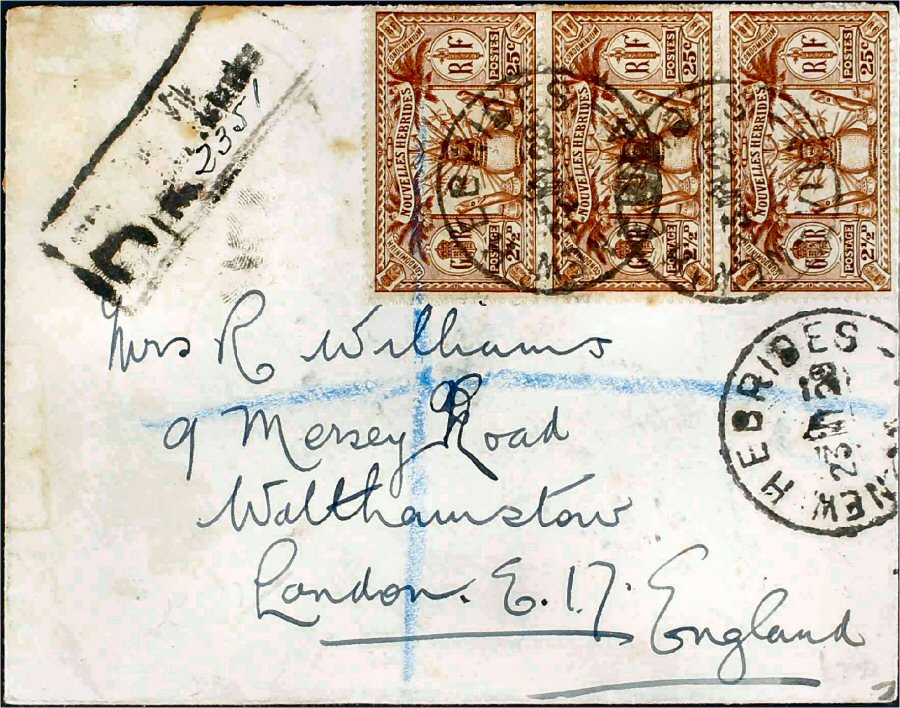 2351
CONDOMINIUM
RF
POSTES
25c
NOUVELLES HEBRIDES
GR
POSTAGE
2½D
CONDOMINIUM
RF
POSTES
25c
NOUVELLES HEBRIDES
GR
POSTAGE
2½D
CONDOMINIUM
RF
POSTES
25c
NOUVELLES HEBRIDES
GR
POSTAGE
2½D
NEW HEBRIDES
Mrs R Williams
9 Mersey Road
Walthamstow
London. E. 17. England